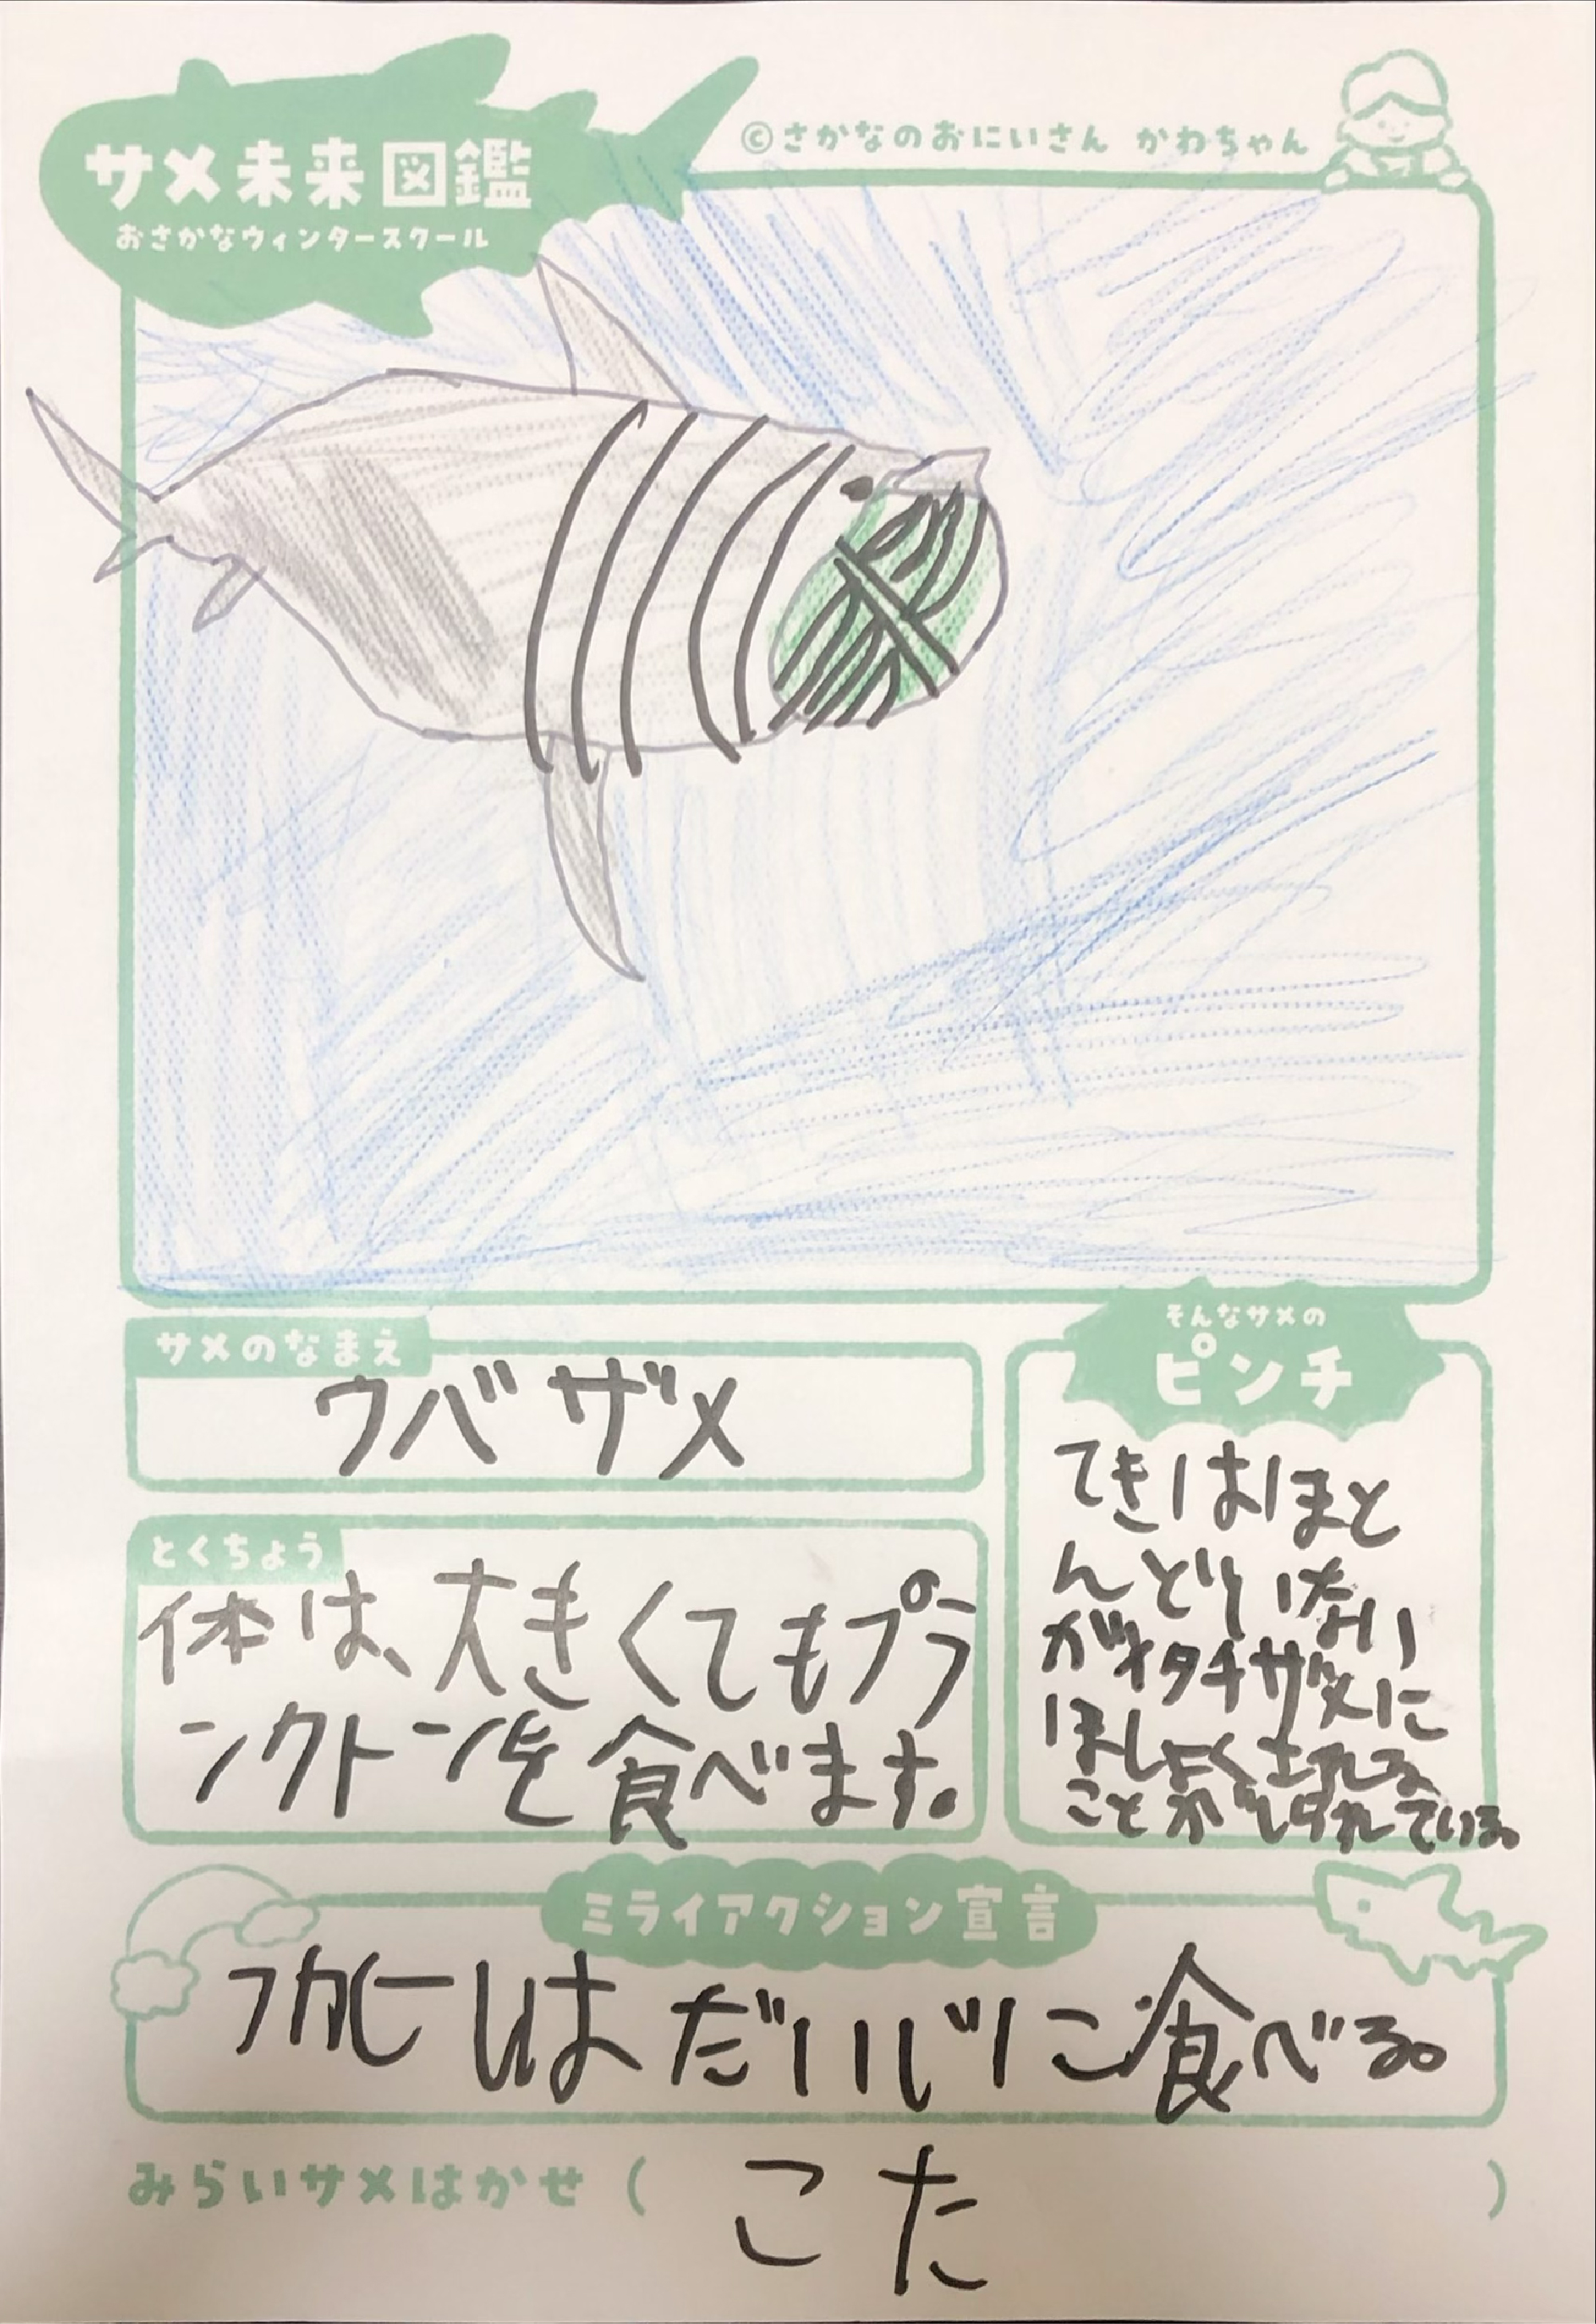 サメ未来図鑑
おさかなウィンタースクール
©さかなのおにいさん かわちゃん
サメのなまえ
ウバザメ
とくちょう
体は、大きくてもプラ
ンクトンを食べます。
そんなサメの
ピンチ
てきはほと
んどいない
がオタチザメに
ほしょくされる
ことがしられている。
ミライアクション宣言
フカヒレはだいじに食べる。
みらいサメはかせ( こた )